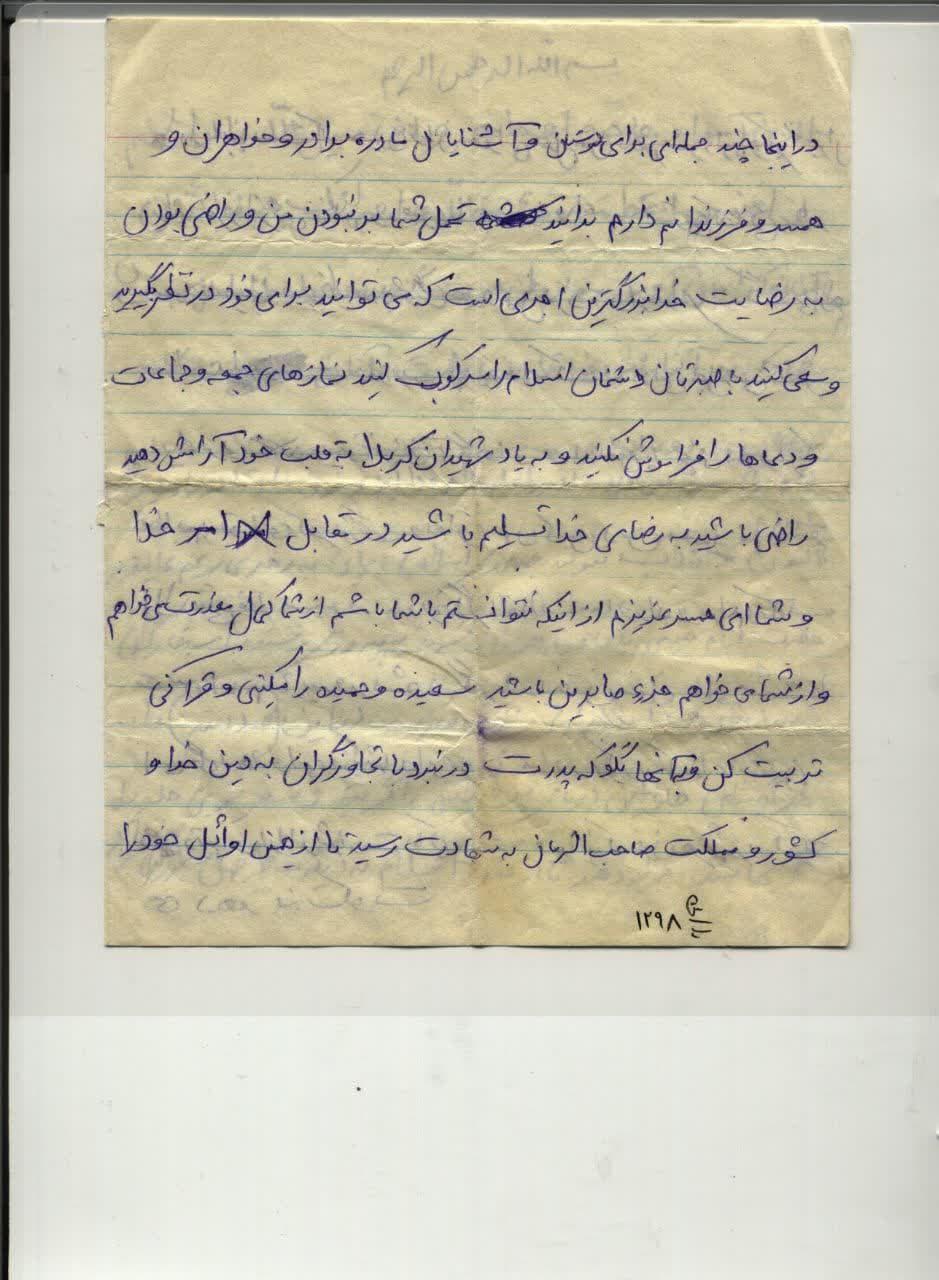 در اینجا چند جمله‌ای برای خویشان و آشنایان مادر برادر و خواهران و
همسر و فرزندانم دارم بدانید تحمل شما بر نبودن من و راضی بودن
به رضایت خدا بزرگترین اجری است که می توانید برای خود در نظر بگیرید
و سعی کنید با صبرتان دشمنان اسلام را سرکوب کنید نمازهای جمعه و جماعات
و دعاها را فراموش نکنید و به یاد شهیدان کربلا به قلب خود آرامش دهید
راضی باشید به رضای خدا تسلیم باشید در مقابل امر خدا
و شما ای همسر عزیزم از اینکه نتوانستم با شما باشم از شما کمال معذرت می خواهم
و از شما می خواهم جزء صابرین باشید سعیده و حمیده را مکتبی و قرآنی
تربیت کن و به آنها بگو که پدرت در نبرد با تجاوزگران به دین خدا و
کشور و مملکت صاحب الزمان به شهادت رسید تا از همین اوائل خود را
۱۲۹۸